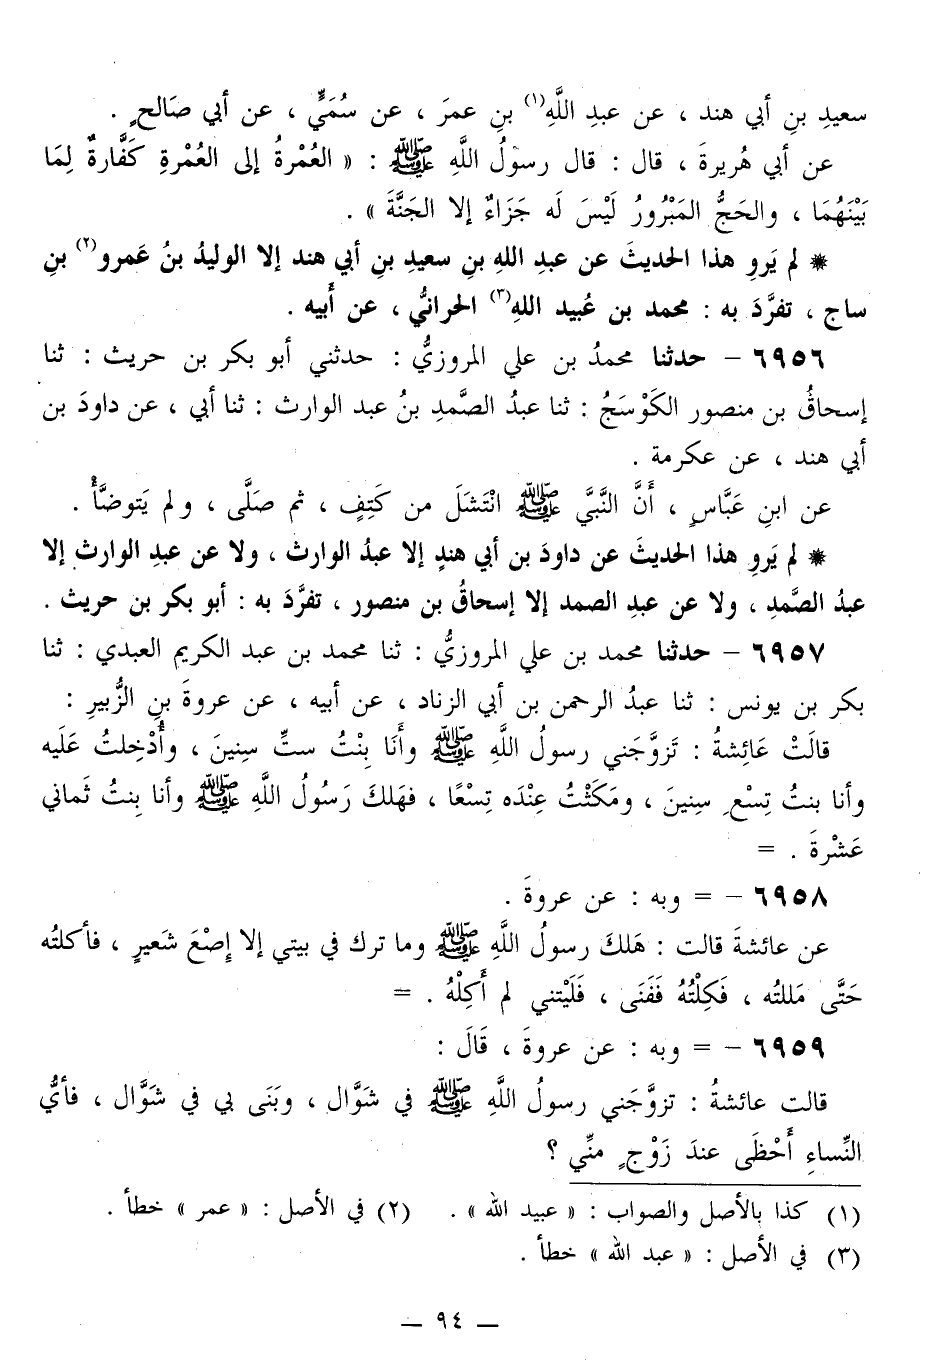 سعيدِ بنِ أبي هند ، عن عبدِ اللَّهِ(١) بنِ عمرَ ، عن سُمَيٍّ ، عن أبي صَالحٍ .
عن أبي هُريرةَ ، قال : قال رسوْلُ اللَّهِ ﷺ : « العُمْرةُ إلى العُمْرةِ كَفَّارةٌ لِمَا
بَيْنَهُمَا ، والحَجُّ المَبْرُورُ لَيْسَ لَه جَزَاءٌ إلا الجَنَّةَ » .
* لم يَروِ هذا الحديثَ عن عبدِ اللهِ بنِ سعيدِ بنِ أبي هند إلا الوليدُ بنُ عَمرو(٢) بنِ
ساج ، تفرَّدَ به : محمد بن عُبيد اللهِ(٣) الحرانيُّ ، عن أَبيه .
٦٩٥٦ – حدثنا محمدُ بن علي المروزيُّ : حدثني أبو بكر بن حريث : ثنا
إسحاقُ بن منصور الكَوْسَجُ : ثنا عبدُ الصَّمدِ بنُ عبد الوارث : ثنا أبي ، عن داودَ بن
أبي هند ، عن عكرمة .
عن ابنِ عَبَّاسٍ ، أَنَّ النَّبيَّ ﷺ انْتَشَلَ من كَتِفٍ ، ثم صَلَّى ، ولم يَتوضَّأْ .
* لم يَروِ هذا الحديثَ عن داودَ بن أبي هندٍ إلا عبدُ الوارث ، ولا عن عبدِ الوارث إلا
عبدُ الصَّمدِ ، ولا عن عبدِ الصمد إلا إسحاقُ بن منصور ، تفرَّدَ به : أبو بكر بن حريث .
٦٩٥٧ – حدثنا محمد بن علي المروزيُّ : ثنا محمد بن عبد الكريم العبدي : ثنا
بكر بن يونس : ثنا عبدُ الرحمن بن أبي الزناد ، عن أبيه ، عن عروةَ بنِ الزُّبيرِ :
قالَتْ عَائِشةُ : تَزوَّجَني رسولُ اللَّهِ ﷺ وأَنَا بِنْتُ ستِّ سِنِينَ ، وأُدْخِلتُ عَلَيه
وأنا بنتُ تِسْعِ سِنينَ ، ومَكَثْتُ عِنْدَه تِسْعًا ، فهَلكَ رَسُولُ اللَّهِ ﷺ وأنا بِنتُ ثَماني
عَشْرةَ . =
٦٩٥٨ – = وبه : عن عروةَ .
عن عائشةَ قالت : هَلكَ رسولُ اللَّهِ ﷺ وما ترك في بيتي إلا إِصْعَ شَعيرٍ ، فأكلتُه
حَتَّى مَللتُه ، فَكِلْتُهُ فَفَنَى ، فَلَيْتني لم أَكِلْهُ . =
٦٩٥٩ – = وبه : عن عروةَ ، قَالَ :
قالت عائشةُ : تزوَّجَني رسولُ اللَّهِ ﷺ في شَوَّال ، وبَنَى بي في شَوَّال ، فأيُّ
النِّساءِ أَحْظَى عندَ زَوْجٍ منِّي ؟
(١) كذا بالأصل والصواب : « عبيد الله » . (٢) في الأصل : « عمر » خطأ .
(٣) في الأصل : « عبد الله » خطأ .
— ٩٤ —